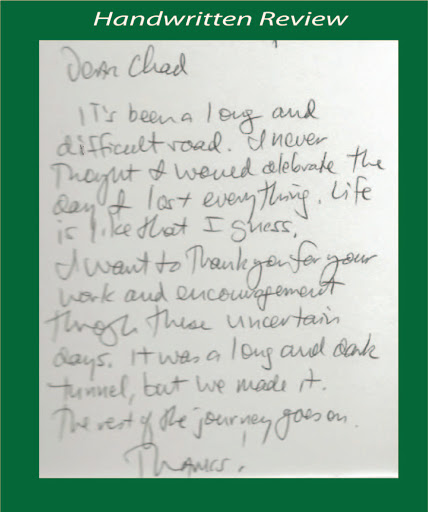 Handwritten Review
Dear Chad
It's been a long and
difficult road. I never
thought I would celebrate the
day I lost everything. Life
is like that I guess.
I want to thank you for your
work and encouragement
through these uncertain
days. It was a long and dark
tunnel, but we made it.
The rest of the journey goes on.
Thanks!